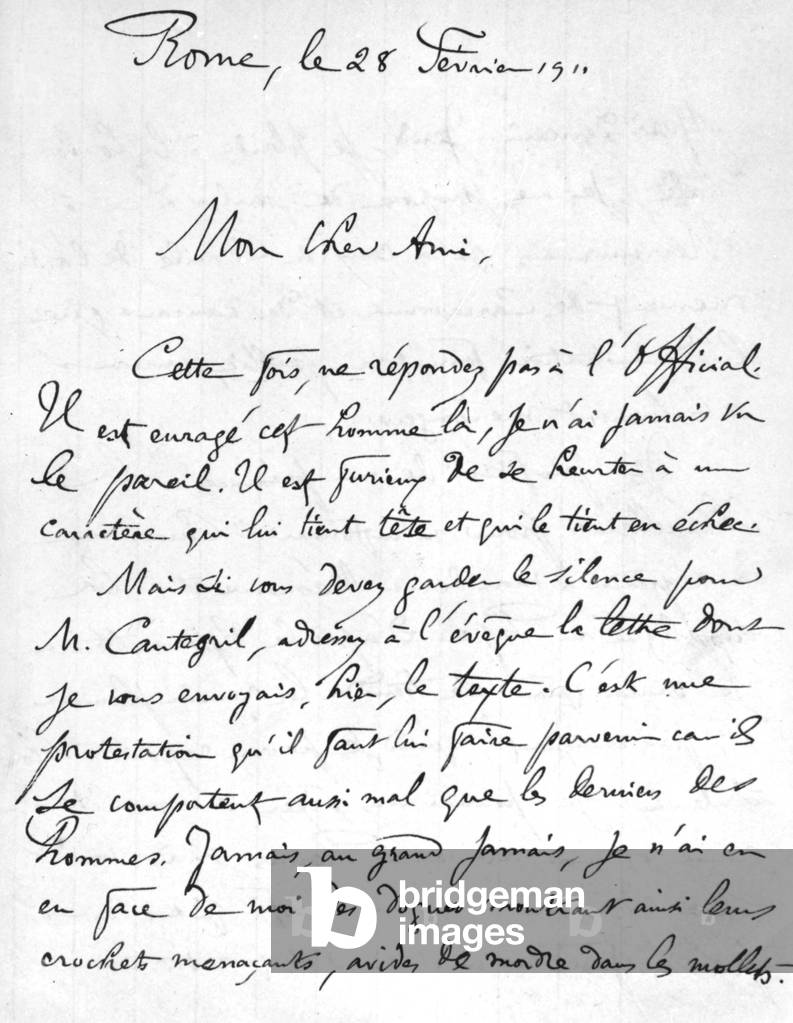 Rome, le 28 Février 1911
Mon cher Ami,
Cette fois, ne répondez pas à l'Official.
Il est enragé cet homme là, je n'ai jamais vu
le pareil. Il est furieux de se heurter à un
caractère qui lui tient tête et qui le tient en échec.
Mais si vous devez garder le silence pour
M. Cantegril, adressez à l'évêque la lettre dont
je vous envoyais, hier, le texte. C'est une
protestation qu'il faut lui faire parvenir car ils
se comportent aussi mal que les derniers des
hommes. Jamais, au grand jamais, je n'ai eu
en face de moi des montrant ainsi leurs
crochets menaçants, avides de mordre dans les mollets.
b bridgeman
images